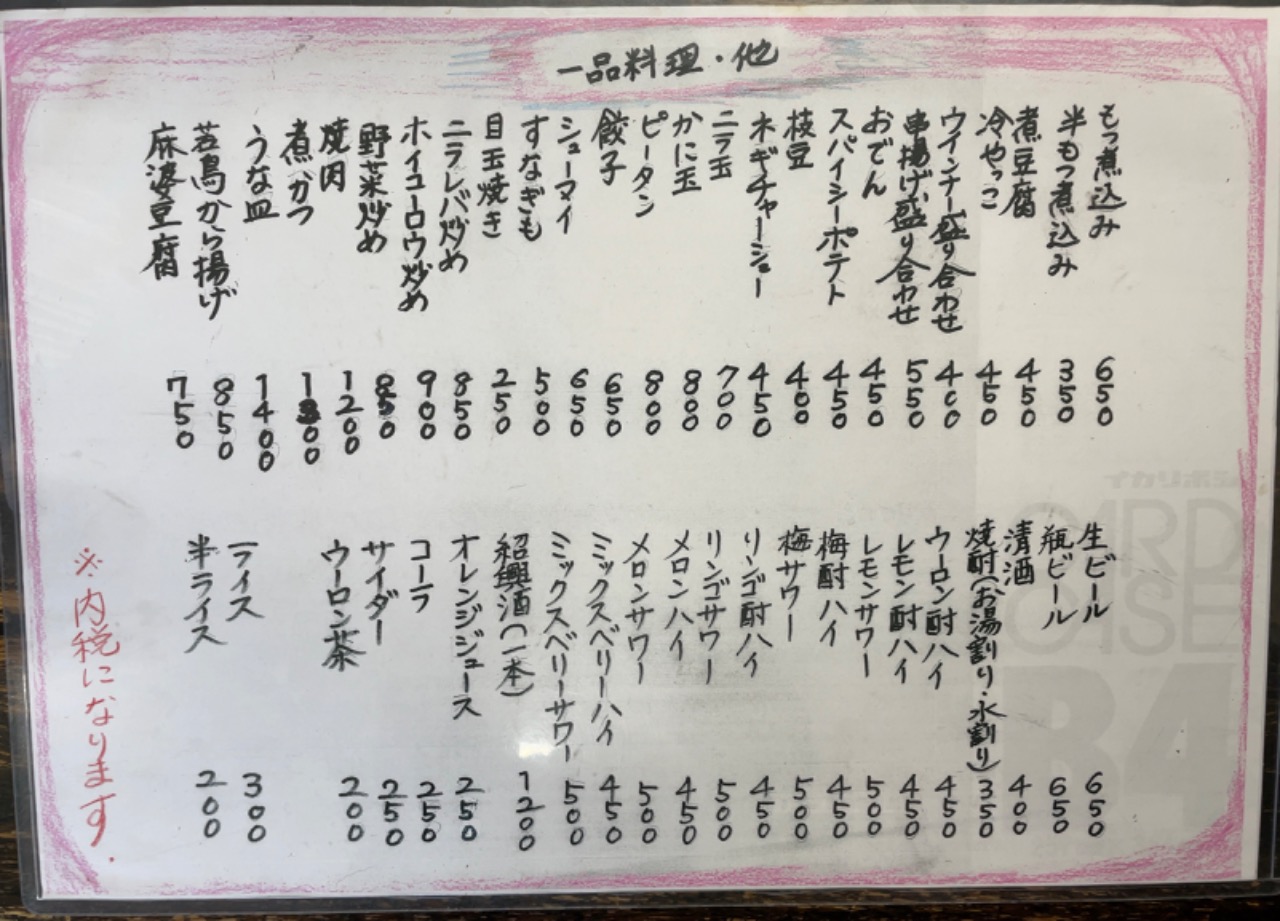 一品料理・他
もつ煮込み 650
半もつ煮込み 350
煮豆腐 450
冷やっこ 450
ウインナー盛り合わせ 400
串揚げ盛り合わせ 550
おでん 450
スパイシーポテト 450
枝豆 400
ネギチャーシュー 450
ニラ玉 700
かに玉 800
ピータン 800
餃子 650
シューマイ 650
すなぎも 500
目玉焼き 250
ニラレバ炒め 850
ホイコーロウ炒め 900
野菜炒め 850
焼肉 1200
煮かつ
うな皿 1400
若鳥から揚げ 850
麻婆豆腐 750
生ビール 650
瓶ビール 650
清酒 400
焼酎(お湯割り・水割り) 350
ウーロン酎ハイ 450
レモン酎ハイ 450
レモンサワー 500
梅酎ハイ 450
梅サワー 500
リンゴ酎ハイ 450
リンゴサワー 500
メロンハイ 450
メロンサワー 500
ミックスベリーハイ 450
ミックスベリーサワー 500
紹興酒(一本) 1200
オレンジジュース 250
コーラ 250
サイダー 250
ウーロン茶 200
ライス 300
半ライス 200
※内税になります.
イカリボシ
CARD
CASE
B4